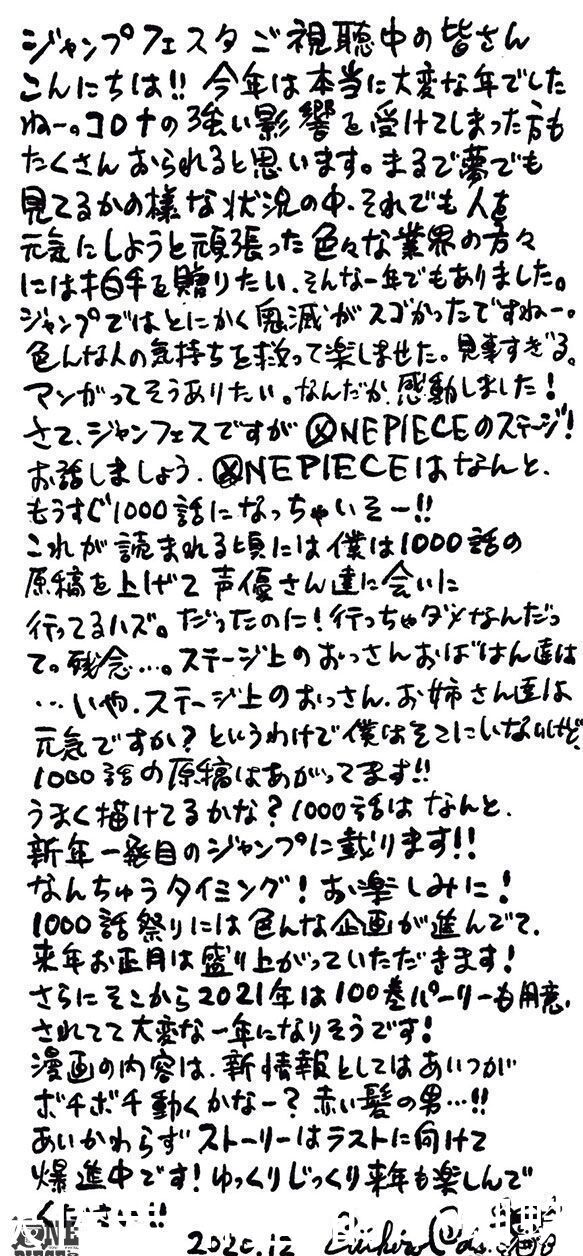 ジャンプフェスタご視聴中の皆さん
こんにちは!! 今年は本当に大変な年でした
ねー。コロナの強い影響を受けてしまった方も
たくさんおられると思います。まるで夢でも
見てるかの様な状況の中、それでも人を
元気にしようと頑張った色々な業界の方々
には拍手を贈りたい、そんな一年でもありました。
ジャンプではとにかく鬼滅がスゴかったですねー。
色んな人の気持ちを救って楽しませた。見事すぎる。
マンガってそうありたい。なんだか感動しました!
さて、ジャンフェスですがONE PIECEのステージ!
お話しましょう、ONE PIECEはなんと、
もうすぐ1000話になっちゃいそー!!
これが読まれる頃には僕は1000話の
原稿を上げて声優さん達に会いに
行ってるハズ。だったのに!行っちゃダメなんだっ
て。残念…。ステージ上のおっさんおばはん達は
…いや、ステージ上のおっさん、お姉さん達は
元気ですか?というわけで僕はそこにいないけど、
1000話の原稿はあがってます!!
うまく描けてるかな?1000話はなんと、
新年一発目のジャンプに載ります!!
なんちゅうタイミング!お楽しみに!
1000話祭りには色んな企画が進んでて、
来年お正月は盛り上がっていただきます!
さらにそこから2021年は100巻パーリーも用意
されてて大変な一年になりそうです!
漫画の内容は、新情報としてはあいつが
ボチボチ動くかなー?赤い髪の男…!!
あいかわらずストーリーはラストに向けて
爆進中です!ゆっくりじっくり来年も楽しんで
ください!!
2020.12